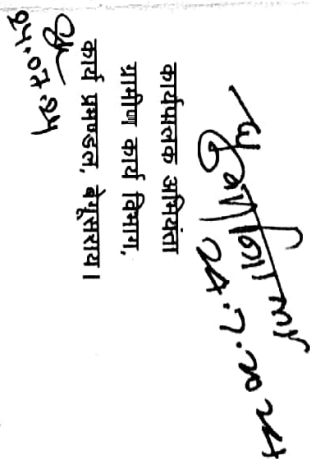 24.7.2024
कार्यपालक अभियंता
ग्रामीण कार्य विभाग,
कार्य प्रमण्डल, बेगूसराय।
24.07.24